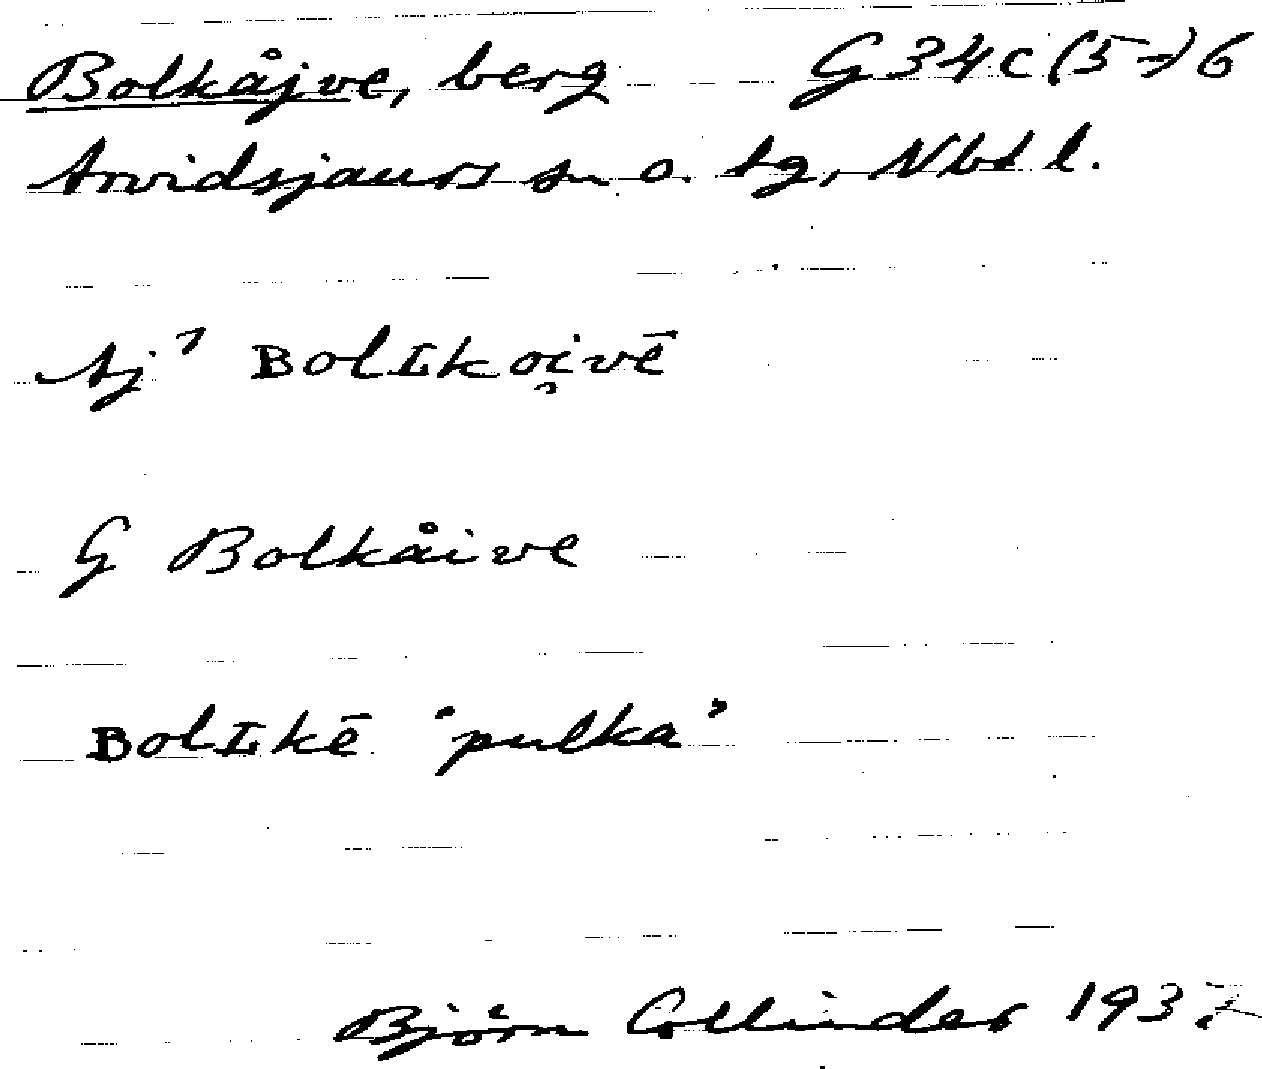 Bolkåjve, berg G34c(5-)6
Arvidsjaurs sn o. tg, Nbt l.
Aj' BolIkoi̯vē
G Bolkåive
BolIkē 'pulka'
Björn Collinder 193